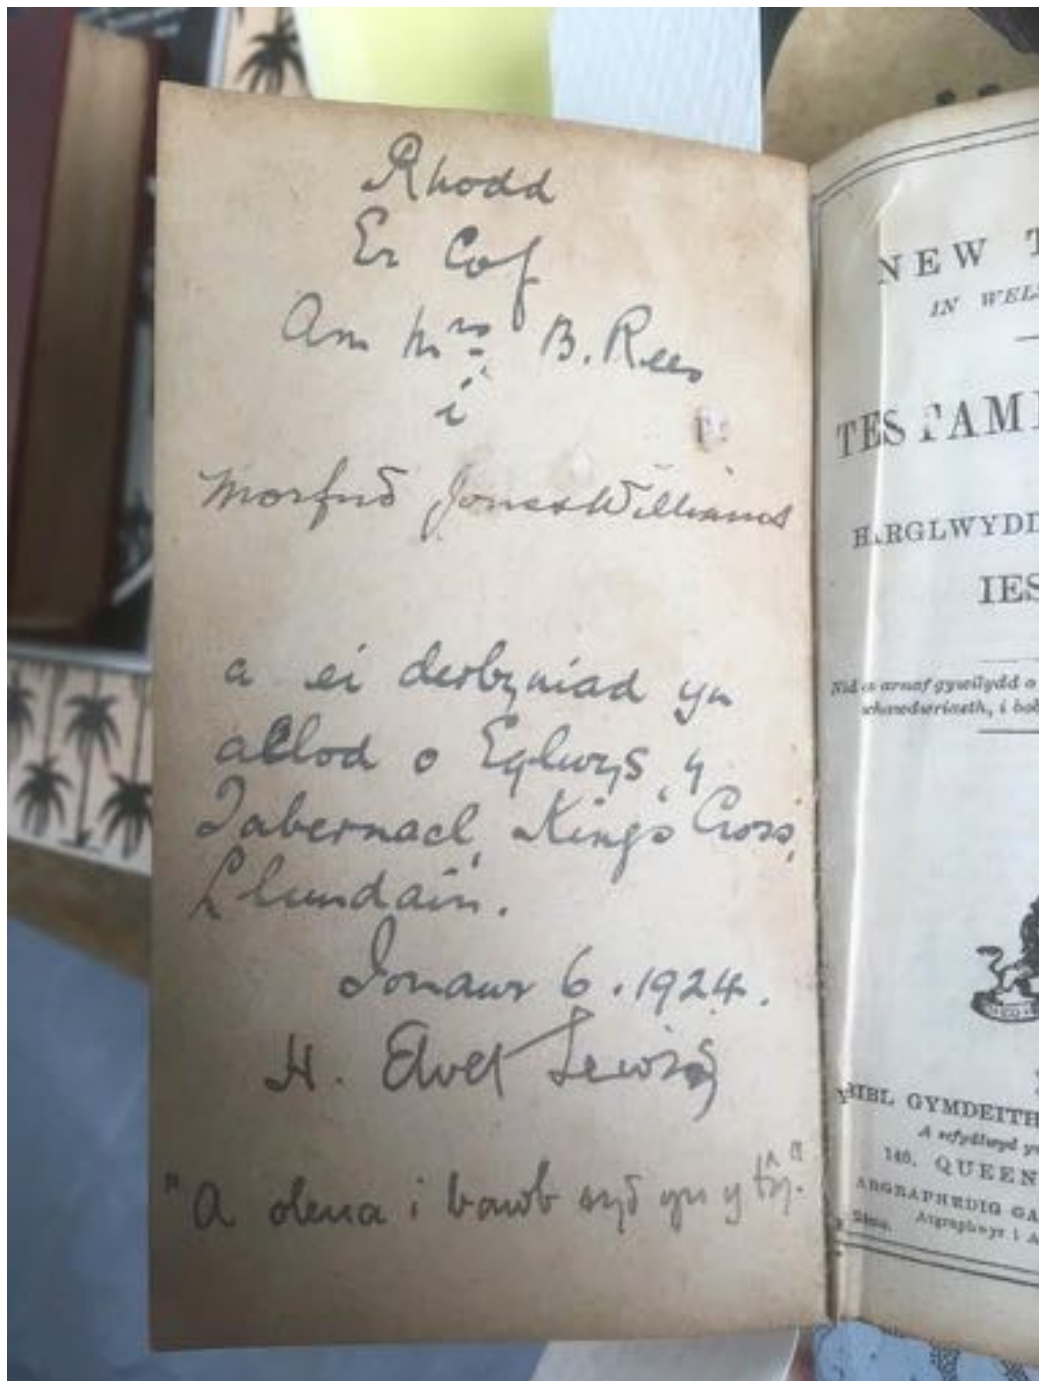 Rhodd
Er Cof
Am Mrs B. Rees
i
Morfuð Jones Williams
a ei derbyniad yn
aelod o Eglwys y
Tabernacl, King's Cross,
Llundain.
Ionawr 6. 1924.
H. Elvet Lewis
"A olena i bawb syð yn y tŷ."
NEW T
IN WEL
TESTAM
HARGLWYDD
IES
Nid arnaf gywilydd o
iachawdwriaeth, i bob
BIBL GYMDEITH
A sefydlwyd y
146, QUEEN
ARGRAPHEDIG GA
Argraphwyr i A